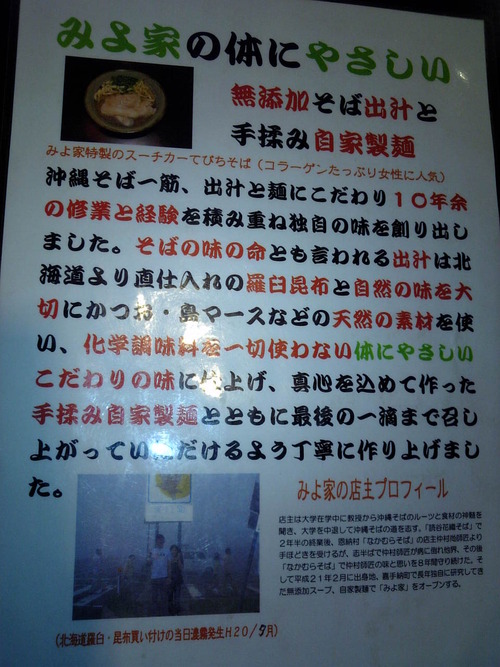 みよ家の体にやさしい
無添加そば出汁と
手揉み自家製麺
みよ家特製のスーチカーてびちそば(コラーゲンたっぷり女性に人気)
沖縄そば一筋、出汁と麺にこだわり10年余
の修業と経験を積み重ね独自の味を創り出し
ました。そばの味の命とも言われる出汁は北
海道より直仕入れの羅臼昆布と自然の味を大
切にかつお・島マースなどの天然の素材を使
い、化学調味料を一切使わない体にやさしい
こだわりの味に仕上げ、真心を込めて作った
手揉み自家製麺とともに最後の一滴まで召し
上がっていただけるよう丁寧に作り上げまし
た。
みよ家の店主プロフィール
店主は大学在学中に教授から沖縄そばのルーツと食材の神髄を
聞き、大学を中退して沖縄そばの道を志す。「読谷花織そば」で
2年半の修業後、恩納村「なかむらそば」の店主仲村尚師匠より
手ほどきを受けるが、志半ばで仲村師匠が病に倒れ他界、その後
「なかむらそば」で仲村師匠の味と思いを8年間守り続けた。そ
して平成21年2月に出身地、嘉手納町で長年独自に研究してき
た無添加スープ、自家製麺で「みよ家」をオープンする。
(北海道羅臼・昆布買い付けの当日濃霧発生H20/7月)